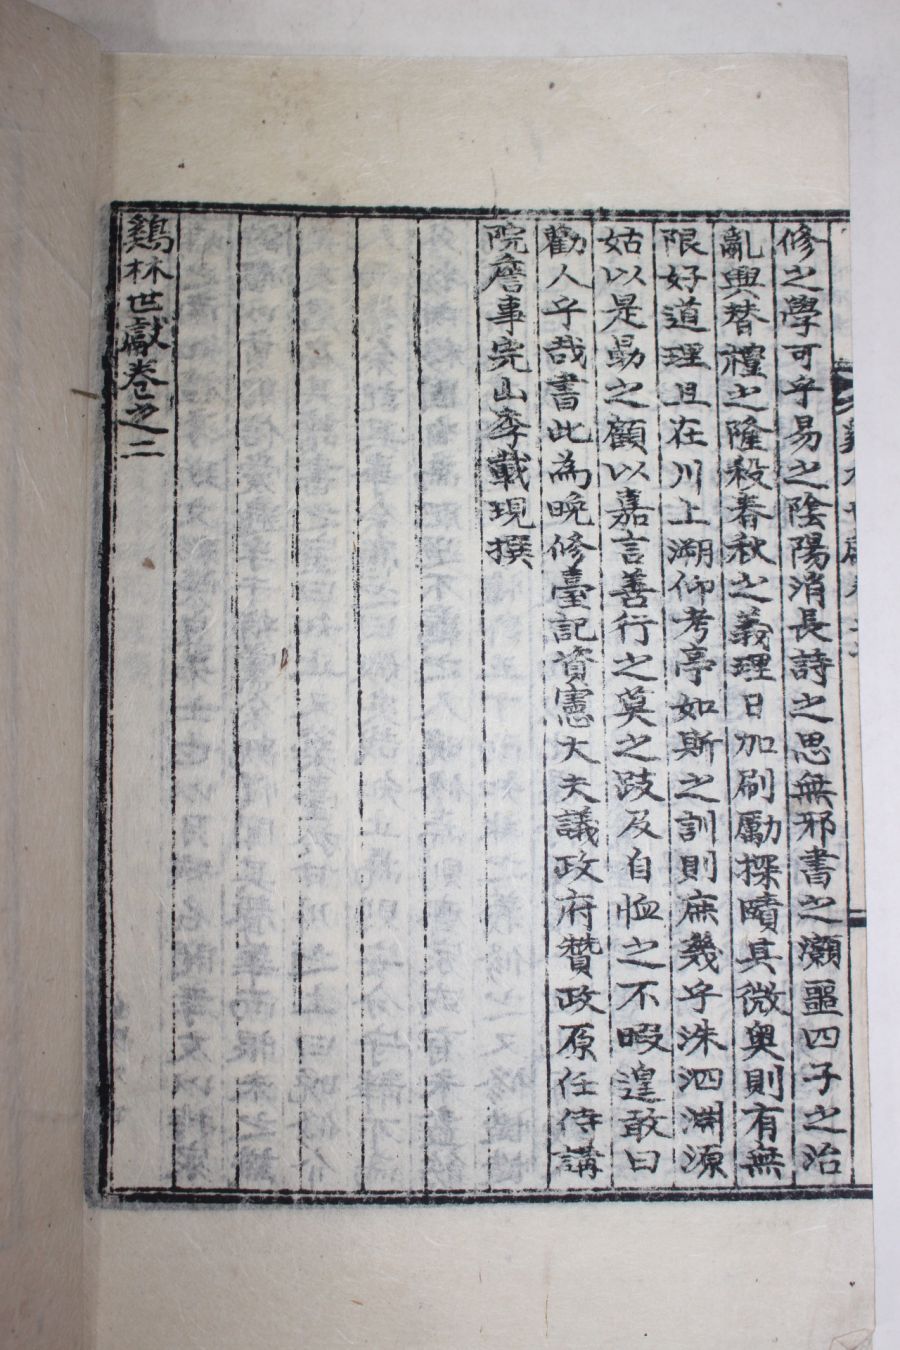 修之學可乎易之陰陽消長詩之思無邪書之灝噩四子之治
亂興替禮之隆殺春秋之義理日加刷勵探賾其微奧則有無
限好道理且在川上溯仰考亭如斯之訓則庶幾乎洙泗淵源
姑以是勗之顧以嘉言善行之莫之跂及自恤之不暇遑敢曰
勸人乎哉書此為晩修臺記資憲大夫議政府贊政原任侍講
院詹事完山李載現撰
鷄林世獻卷之二